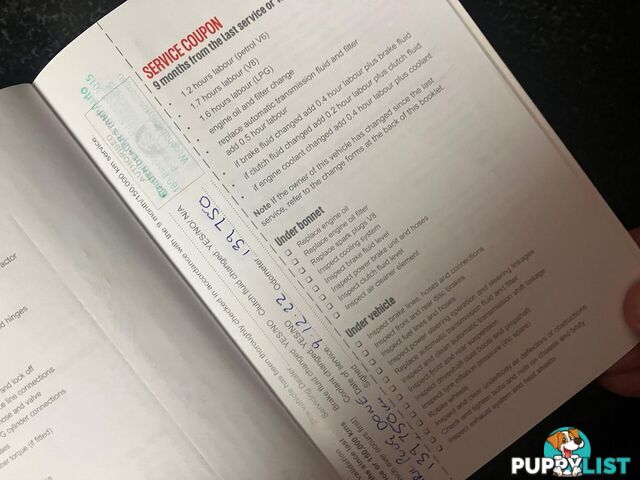 SERVICE COUPON
9 months from the last service or
1.2 hours labour (petrol V6)
1.7 hours labour (V8)
1.6 hours labour (LPG)
engine oil and filter change
replace automatic transmission fluid and filter
add 0.5 hour labour
if brake fluid changed add 0.4 hour labour plus brake fluid
if clutch fluid changed add 0.2 hour labour plus clutch fluid
if engine coolant changed add 0.4 hour labour plus coolant
Note If the owner of this vehicle has changed since the last
service, refer to the change forms at the back of this booklet.
Under bonnet
Replace engine oil
Replace engine oil filter
Replace spark plugs V8
Inspect cooling system
Inspect brake fluid level
Inspect power brake unit and hoses
Inspect clutch fluid level
Inspect air cleaner element
Under vehicle
Inspect brake lines, hoses and connections
Inspect front and rear disc brakes
Inspect fuel lines and hoses
Inspect power steering operation and steering linkages
Replace automatic transmission fluid and filter
Inspect and clean automatic transmission shift linkage
Inspect front and rear suspension
Inspect driveshaft dust boots and propshaft
Inspect tyre inflation pressure (inc spare)
Rotate wheels
Inspect and clear underbody air deflectors of obstructions
Check and tighten bolts and nuts on chassis and body
Inspect exhaust system and heat shields
This vehicle has been thoroughly checked in accordance with the 9 month/150,000 km service
AUTHORISED
Odometer 139,750
Clutch fluid changed YES/NO/N/A
Brake fluid changed: YES/NO
Coolant changed: YES/NO
Date of service 9.12.22
Signed
Servicing Dealer
validation
the since last
or 150,000 kms
occurs first
139,750
actor
d hinges
and lock off
ce line connections
hose and valve
G cylinder connections
er torque (if fitted)
PUPPYLIST
.COM.AU